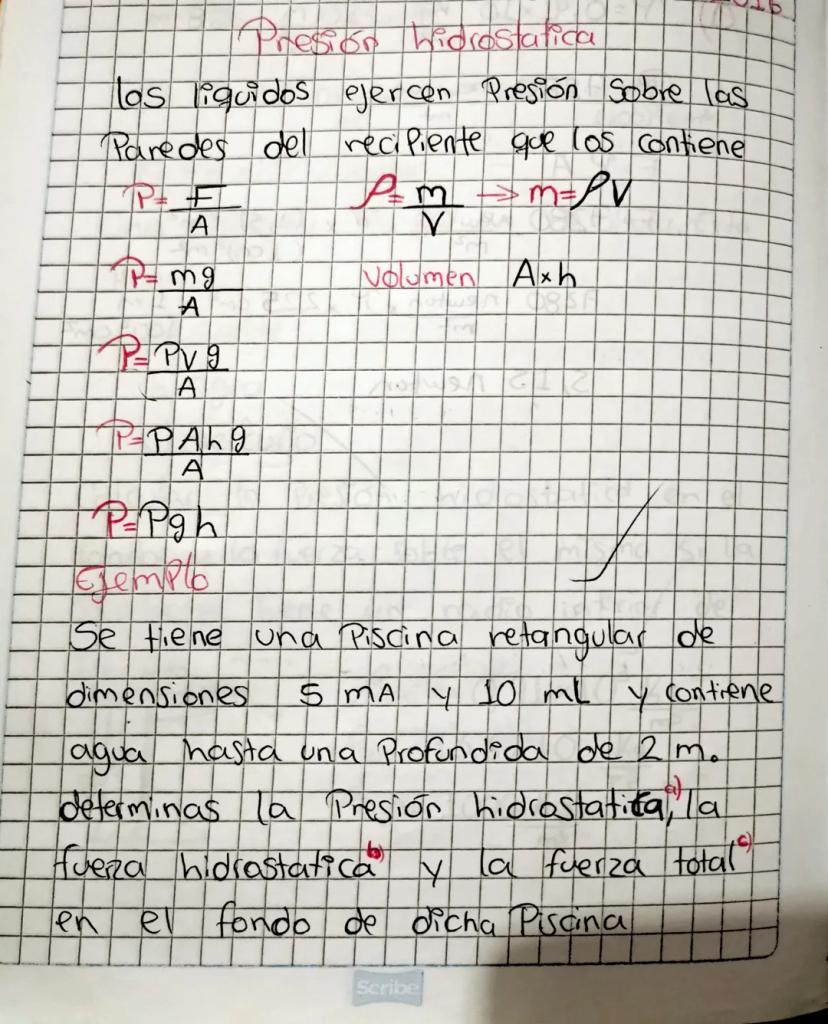 Presión hidrostatica
los liquidos ejercen Presión Sobre las
Paredes del recipiente que los contiene
P = F/A   ρ = m/V → m = ρV
P = mg/A   Volumen A×h
P = PVg/A
P = PAhg/A
P = Pgh
Ejemplo
Se tiene una Piscina retangular de
dimensiones 5 mA y 10 mL y contiene
agua hasta una Profundida de 2 m.
determinas la Presión hidrostatica,a) la
fuerza hidrostatica b) y la fuerza total c)
en el fondo de dicha Piscina
Scribe